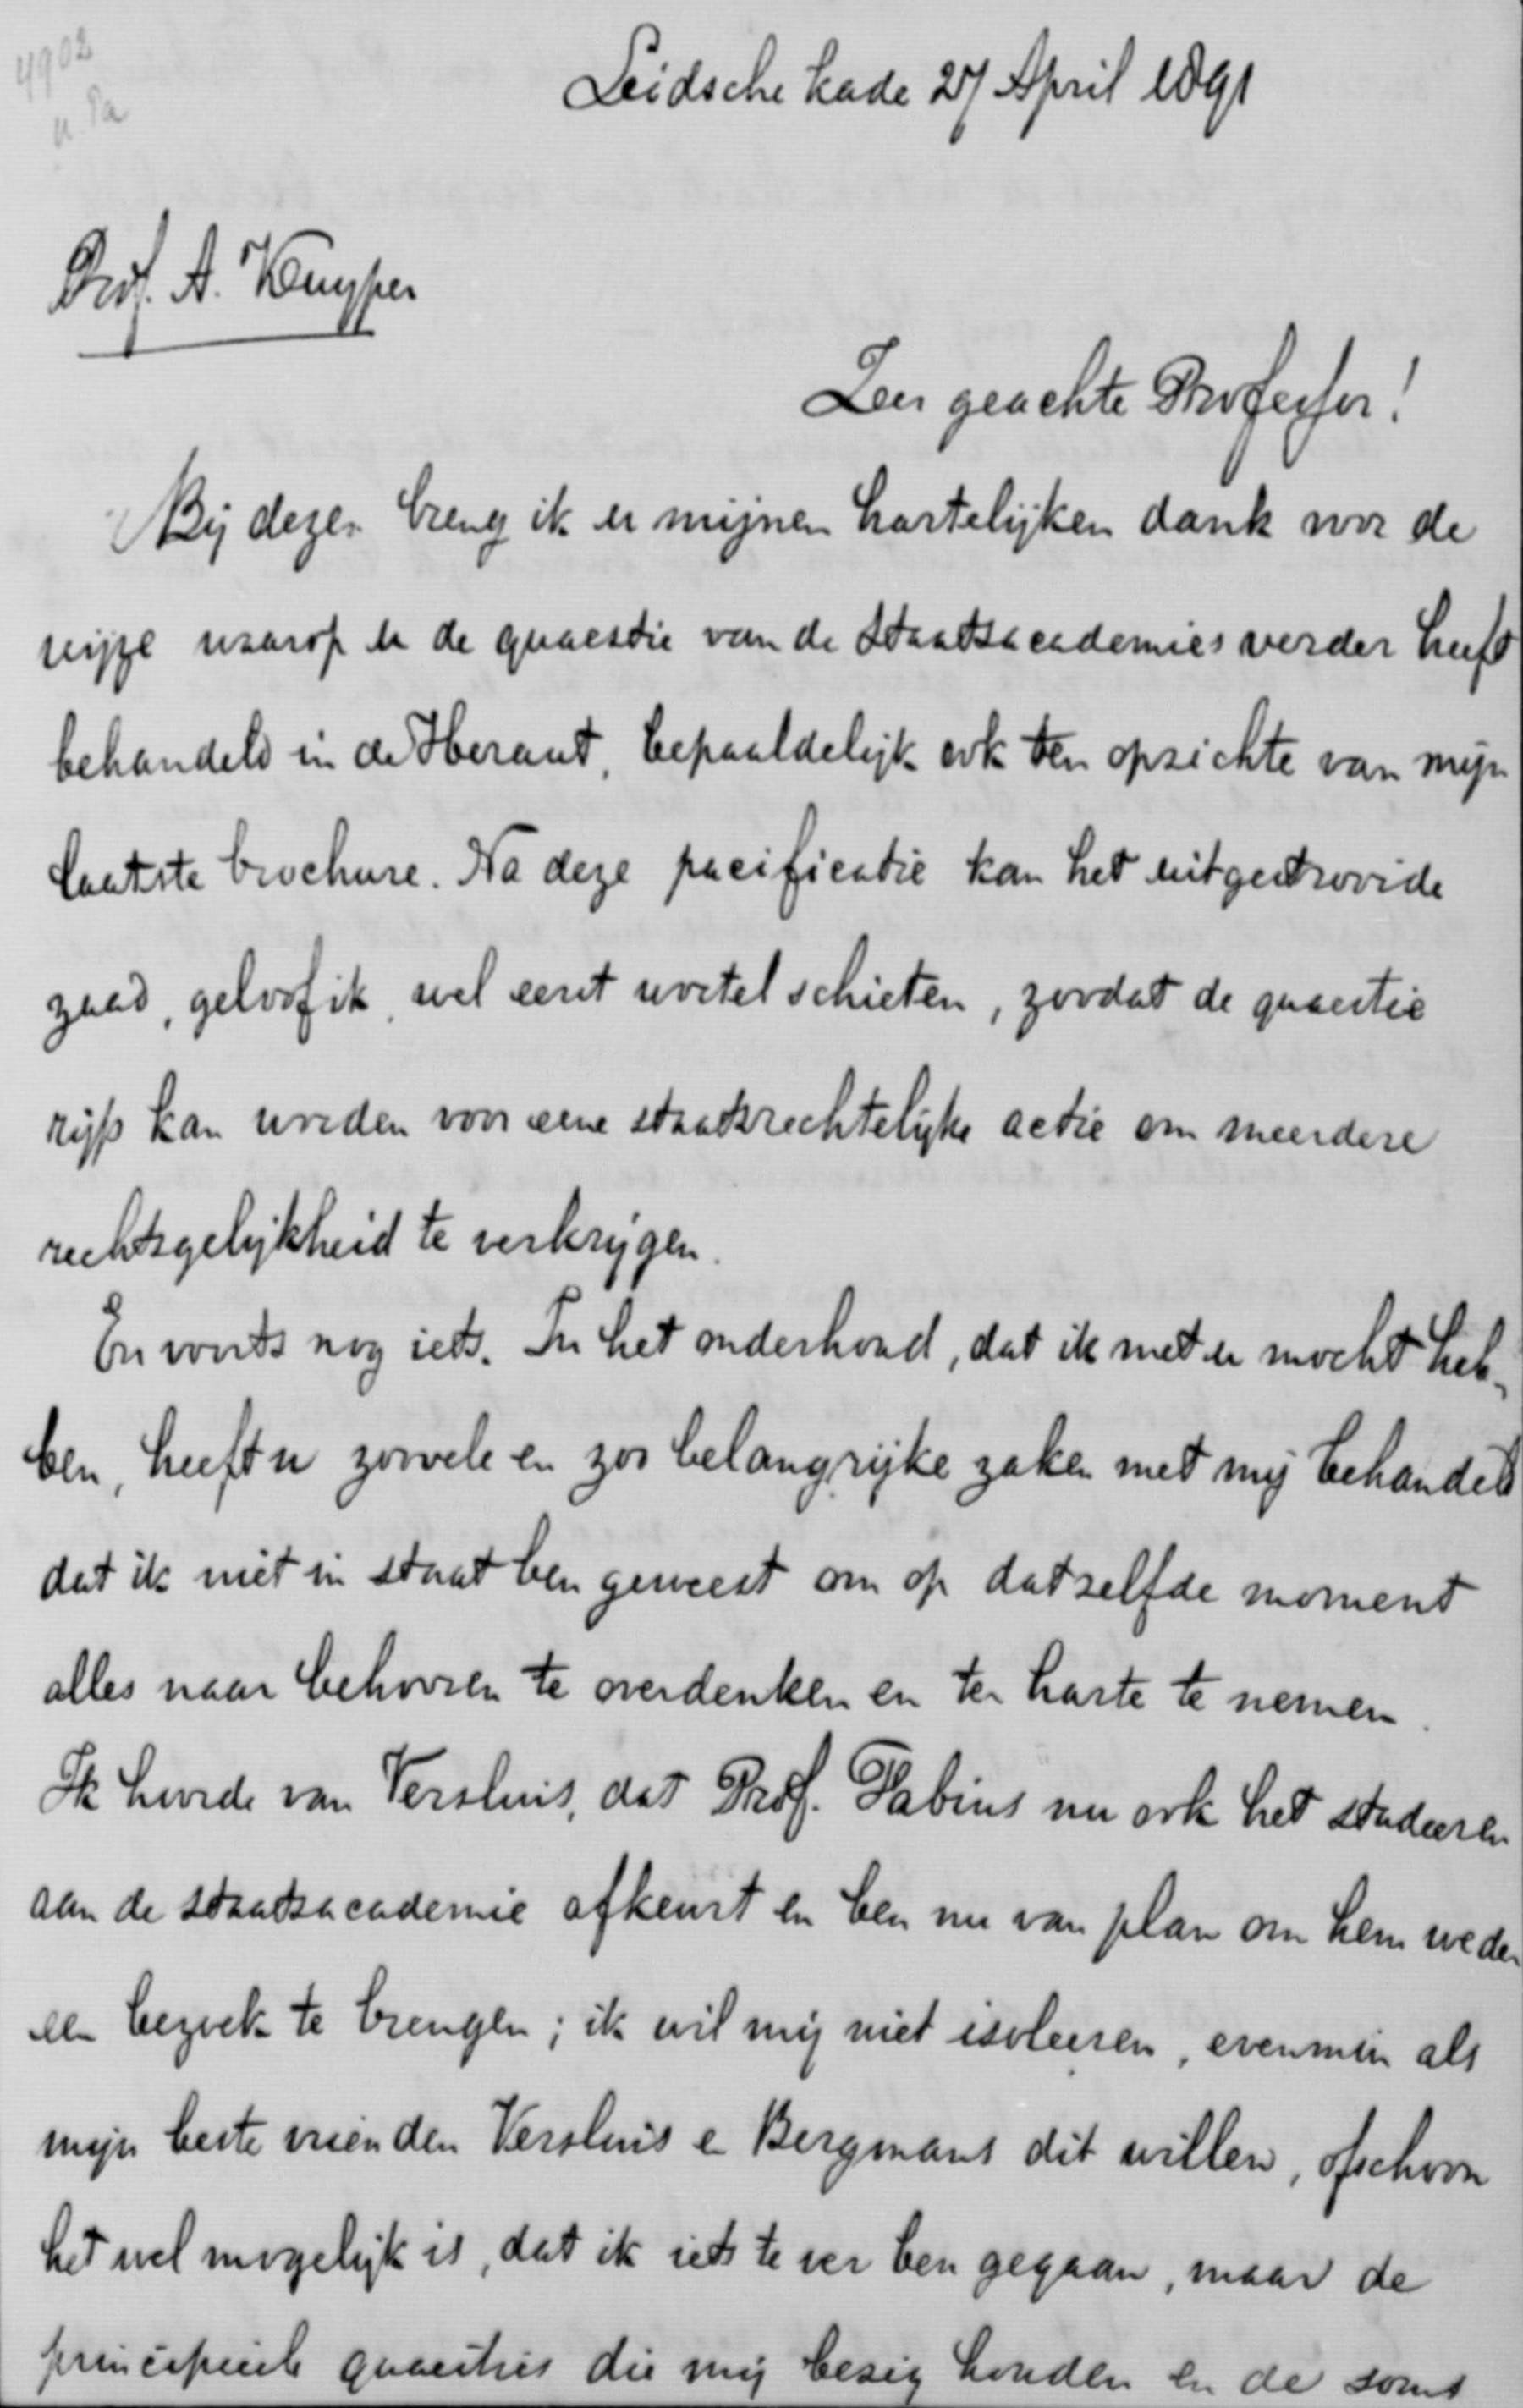 4902
Leidsche kade 27 April 1891
Prof. A. Kuyper
Zeer geachte Professor!
Bij dezen breng ik u mijnen hartelijken dank voor de
wijze waarop u de quaestie van de Staatsacademies verder heeft
behandeld in de Heraut, bepaaldelijk ook ten opzichte van mijn
laatste brochure. Na deze pacificatie kan het uitgestrooide
zaad, geloof ik, wel eerst wortel schieten, zoodat de quaestie
rijp kan worden voor eene staatsrechtelijke actie om meerdere
rechtsgelijkheid te verkrijgen.
En voorts nog iets. In het onderhoud, dat ik met u mocht heb-
ben, heeft u zoovele en zoo belangrijke zaken met mij behandeld
dat ik niet in staat ben geweest om op datzelfde moment
alles naar behooren te overdenken en ter harte te nemen.
Ik hoorde van Versluis, dat Prof. Fabius nu ook het studeeren
aan de staatsacademie afkeurt en ben nu van plan om hem weder
een bezoek te brengen; ik wil mij niet isoleeren, evenmin als
mijn beste vrienden Versluis en Bergmans dit willen, ofschoon
het wel mogelijk is, dat ik iets te ver ben gegaan, maar de
principieele quaesties die mij bezig houden en de soms